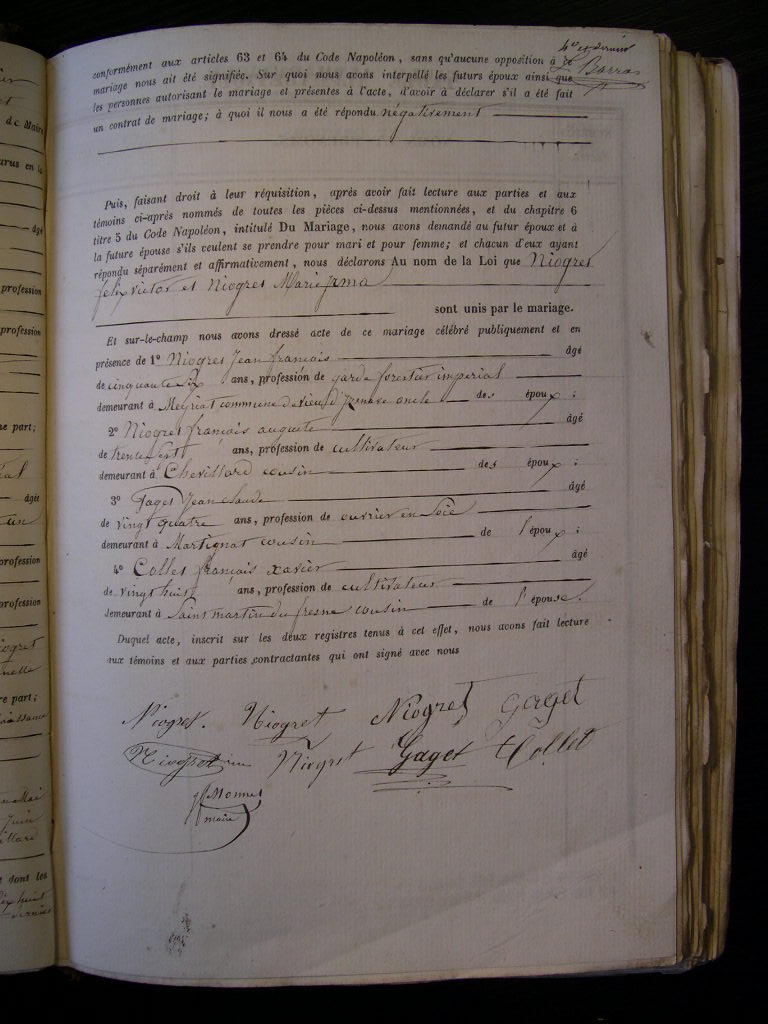 4e et dernier
Barras
conformément aux articles 63 et 64 du Code Napoléon, sans qu'aucune opposition à ce
mariage nous ait été signifiée. Sur quoi nous avons interpellé les futurs époux ainsi que
les personnes autorisant le mariage et présentes à l'acte, d'avoir à déclarer s'il a été fait
un contrat de mariage; à quoi il nous a été répondu négativement
Puis, faisant droit à leur réquisition, après avoir fait lecture aux parties et aux
témoins ci-après nommés de toutes les pièces ci-dessus mentionnées, et du chapitre 6
titre 5 du Code Napoléon, intitulé Du Mariage, nous avons demandé au futur époux et à
la future épouse s'ils veulent se prendre pour mari et pour femme; et chacun d'eux ayant
répondu séparément et affirmativement, nous déclarons Au nom de la Loi que Niogret
felix victor et Niogret Marie irma
sont unis par le mariage.
Et sur-le-champ nous avons dressé acte de ce mariage célébré publiquement et en
présence de 1° Niogret Jean françois âgé
de cinquante six ans, profession de garde forestier imperial
demeurant à Meyriat commune de vieu d'Izenave oncle des époux :
2° Niogret françois auguste âgé
de trente sept ans, profession de cultivateur
demeurant à Chevillard cousin des époux :
3° Gaget Jean claude âgé
de vingt quatre ans, profession de ouvrier en Soie
demeurant à Martignat cousin de l'époux :
4° Collet françois xavier âgé
de vingt huit ans, profession de cultivateur
demeurant à Saint martin du fresne cousin de l'épouse.
Duquel acte, inscrit sur les deux registres tenus à cet effet, nous avons fait lecture
aux témoins et aux parties contractantes qui ont signé avec nous
Niogret. Niogret Niogret Gaget
Niogret Niogret Gaget Collet
Monnet
maire